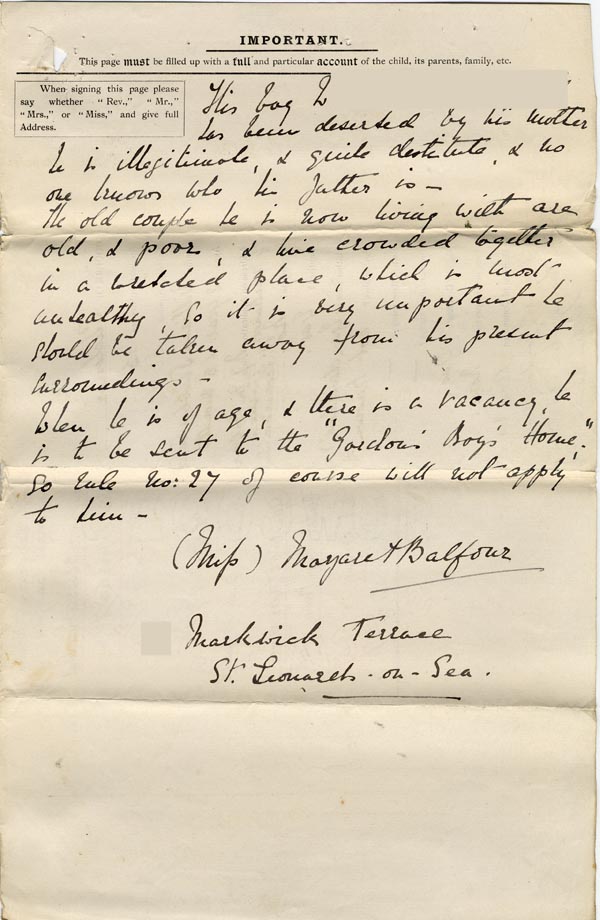 IMPORTANT.
This page must be filled up with a full and particular account of the child, its parents, family, etc.
When signing this page please
say whether "Rev.," "Mr.,"
"Mrs.," or "Miss," and give full
Address.
This boy
has been deserted by his mother
he is illegitimate, & quite destitute, & no
one knows who his father is –
The old couple he is now living with are
old, & poor, & live crowded together
in a wretched place, which is most
unhealthy, So it is very important he
should be taken away from his present
surroundings –
When he is of age, & there is a vacancy, he
is to be sent to the "Gordon's Boy's Home".
So rule No: 27 of course will not apply
to him –
(Miss) Margaret Balfour
Markwick Terrace
St. Leonards - on - Sea.